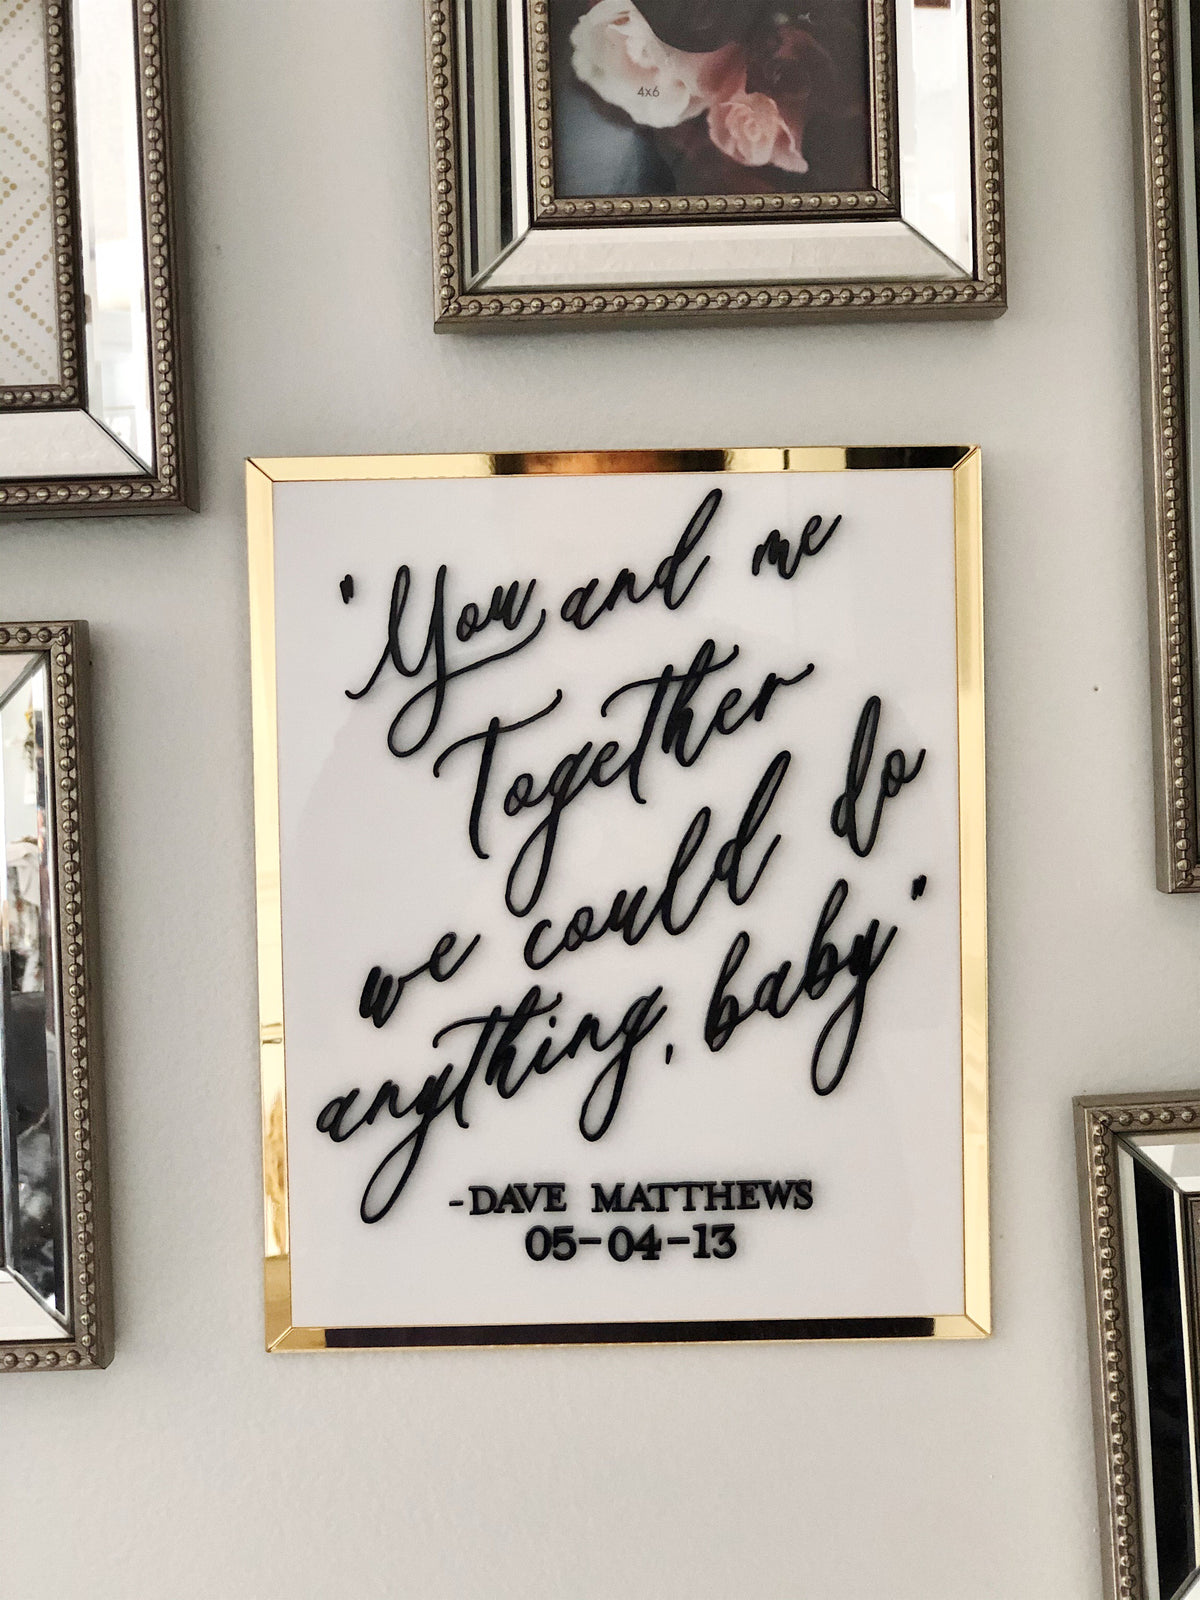 4x6
"You and me
Together
we could do
anything, baby"
-DAVE MATTHEWS
05-04-13